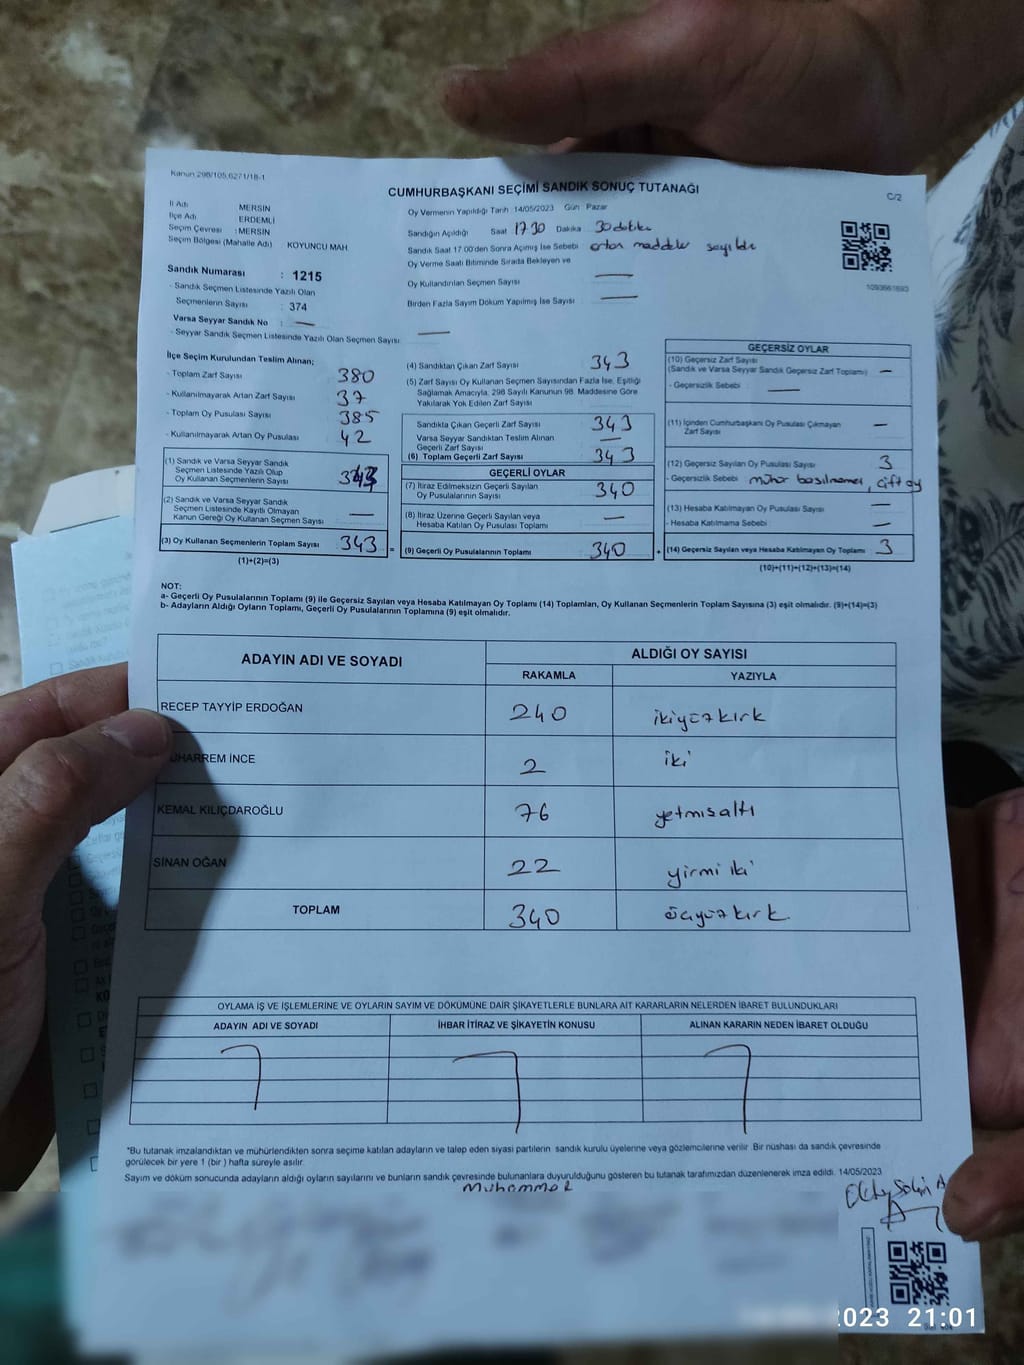 Kanun 298/105,6271/18-1
CUMHURBAŞKANI SEÇİMİ SANDIK SONUÇ TUTANAĞI
C/2
İl Adı MERSİN
İlçe Adı ERDEMLİ
Seçim Çevresi : MERSİN
Seçim Bölgesi (Mahalle Adı) : KOYUNCU MAH
Oy Vermenin Yapıldığı Tarih 14/05/2023 Gün Pazar
Sandığın Açıldığı Saat 17 30 Dakika 30 dakika
Sandık Saat 17.00'den Sonra Açılmış İse Sebebi artan maddeler sayıldı
Oy Verme Saati Bitiminde Sırada Bekleyen ve
Oy Kullandırılan Seçmen Sayısı —
Birden Fazla Sayım Döküm Yapılmış İse Sayısı —
1093661693
Sandık Numarası : 1215
- Sandık Seçmen Listesinde Yazılı Olan
Seçmenlerin Sayısı : 374
Varsa Seyyar Sandık No : —
- Seyyar Sandık Seçmen Listesinde Yazılı Olan Seçmen Sayısı —
İlçe Seçim Kurulundan Teslim Alınan;
- Toplam Zarf Sayısı 380
- Kullanılmayarak Artan Zarf Sayısı 37
- Toplam Oy Pusulası Sayısı 385
- Kullanılmayarak Artan Oy Pusulası 42
(1) Sandık ve Varsa Seyyar Sandık
Seçmen Listesinde Yazılı Olup
Oy Kullanan Seçmenlerin Sayısı 343
(2) Sandık ve Varsa Seyyar Sandık
Seçmen Listesinde Kayıtlı Olmayan
Kanun Gereği Oy Kullanan Seçmen Sayısı —
(3) Oy Kullanan Seçmenlerin Toplam Sayısı 343 =
(1)+(2)=(3)
(4) Sandıktan Çıkan Zarf Sayısı 343
(5) Zarf Sayısı Oy Kullanan Seçmen Sayısından Fazla İse, Eşitliği
Sağlamak Amacıyla, 298 Sayılı Kanunun 98. Maddesine Göre
Yakılarak Yok Edilen Zarf Sayısı —
Sandıkta Çıkan Geçerli Zarf Sayısı 343
Varsa Seyyar Sandıktan Teslim Alınan
Geçerli Zarf Sayısı —
(6) Toplam Geçerli Zarf Sayısı 343
GEÇERLİ OYLAR
(7) İtiraz Edilmeksizin Geçerli Sayılan
Oy Pusulalarının Sayısı 340
(8) İtiraz Üzerine Geçerli Sayılan veya
Hesaba Katılan Oy Pusulası Toplamı —
(9) Geçerli Oy Pusulalarının Toplamı 340 +
GEÇERSİZ OYLAR
(10) Geçersiz Zarf Sayısı
(Sandık ve Varsa Seyyar Sandık Geçersiz Zarf Toplamı) —
- Geçersizlik Sebebi —
(11) İçinden Cumhurbaşkanı Oy Pusulası Çıkmayan
Zarf Sayısı —
(12) Geçersiz Sayılan Oy Pusulası Sayısı 3
- Geçersizlik Sebebi mühür basılmama, çift oy
(13) Hesaba Katılmayan Oy Pusulası Sayısı —
- Hesaba Katılmama Sebebi —
(14) Geçersiz Sayılan veya Hesaba Katılmayan Oy Toplamı 3
(10)+(11)+(12)+(13)=(14)
NOT:
a- Geçerli Oy Pusulalarının Toplamı (9) ile Geçersiz Sayılan veya Hesaba Katılmayan Oy Toplamı (14) Toplamları, Oy Kullanan Seçmenlerin Toplam Sayısına (3) eşit olmalıdır. (9)+(14)=(3)
b- Adayların Aldığı Oyların Toplamı, Geçerli Oy Pusulalarının Toplamına (9) eşit olmalıdır.
ADAYIN ADI VE SOYADI ALDIĞI OY SAYISI
RAKAMLA YAZIYLA
RECEP TAYYİP ERDOĞAN 240 ikiyüzkırk
UHARREM İNCE 2 iki
KEMAL KILIÇDAROĞLU 76 yetmisaltı
SİNAN OĞAN 22 yirmi iki
TOPLAM 340 üçyüzkırk
OYLAMA İŞ VE İŞLEMLERİNE VE OYLARIN SAYIM VE DÖKÜMÜNE DAİR ŞİKAYETLERLE BUNLARA AİT KARARLARIN NELERDEN İBARET BULUNDUKLARI
ADAYIN ADI VE SOYADI İHBAR İTİRAZ VE ŞİKAYETİN KONUSU ALINAN KARARIN NEDEN İBARET OLDUĞU
*Bu tutanak imzalandıktan ve mühürlendikten sonra seçime katılan adayların ve talep eden siyasi partilerin sandık kurulu üyelerine veya gözlemcilerine verilir. Bir nüshası da sandık çevresinde
görülecek bir yere 1 (bir) hafta süreyle asılır.
Sayım ve döküm sonucunda adayların aldığı oyların sayılarını ve bunların sandık çevresinde bulunanlara duyurulduğunu gösteren bu tutanak tarafımızdan düzenlenerek imza edildi. 14/05/2023
2023 21:01